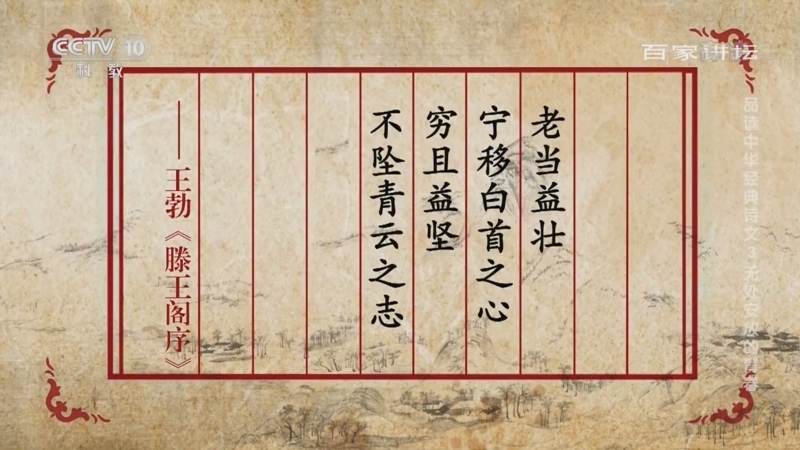 CCTV 10
科教
百家讲坛
老当益壮
宁移白首之心
穷且益坚
不坠青云之志
——王勃《滕王阁序》
品读中华经典诗文 3 无处安放的青春